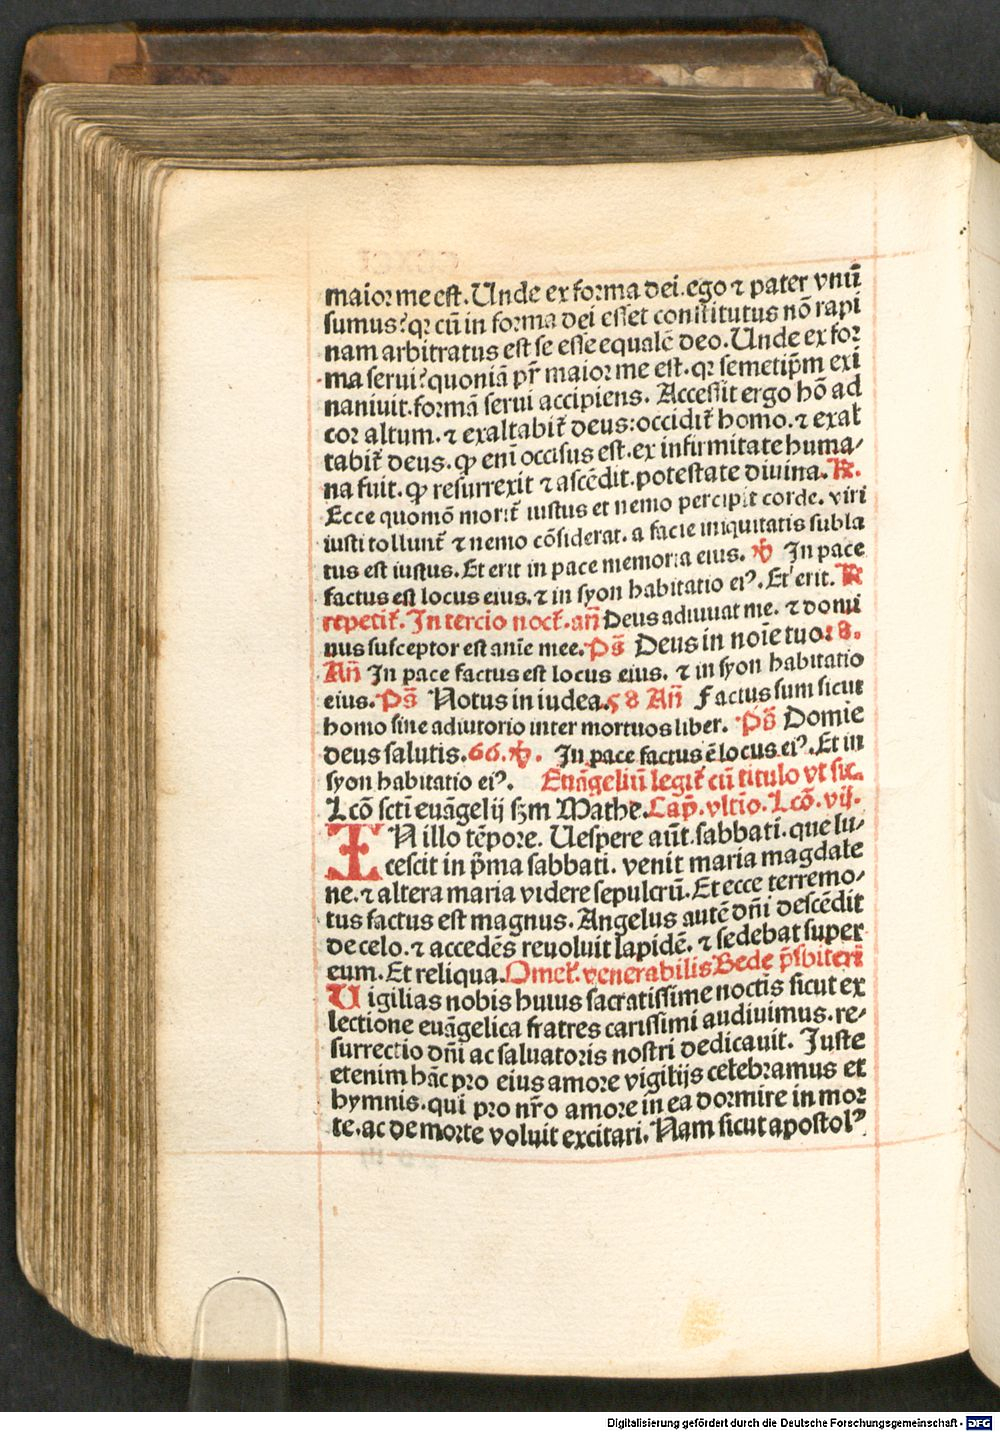 maior me est. Unde ex forma dei. ego ⁊ pater vnū
sumus? qꝛ cū in forma dei esset constitutus nō rapi
nam arbitratus est se esse equalē deo. Unde ex for
ma serui? quoniā pr̄ maior me est. qꝛ semetip̄m exi
naniuit. formā serui accipiens. Accessit ergo hō ad
cor altum. ⁊ exaltabit̄ deus: occidit̄ homo. ⁊ exal
tabit̄ deus. ꝙ eni occisus est. ex infirmitate huma⸗
na fuit. ꝙ resurrexit ⁊ ascēdit. potestate diuina. ℟.
Ecce quomō morit̄ iustus et nemo percipit corde. viri
iusti tollunt̄ ⁊ nemo cōsiderat. a facie iniquitatis subla
tus est iustus. Et erit in pace memoria eius. ℣ In pace
factus est locus eius. ⁊ in syon habitatio eiꝰ. Et erit. ℟
repetit̄. In tercio noct̄. an̄ Deus adiuuat me. ⁊ domi
nus susceptor est anīe mee. Ps̄ Deus in noīe tuo: 8.
An̄ In pace factus est locus eius. ⁊ in syon habitatio
eius. Ps̄ Notus in iudea. 58 An̄ Factus sum sicut
homo sine adiutorio inter mortuos liber. Ps̄ Domie
deus salutis. 66. ℣. In pace factus ē locus eiꝰ. Et in
syon habitatio eiꝰ. Euāgeliū legit̄ cū titulo vt sic.
Lcō scti euāgelij ẜm Mathe. Cap̄. vltīo. Lcō. vij.
IN illo tēpore. Uespere aūt. sabbati. que lu⸗
cescit in p̄ma sabbati. venit maria magdale
ne. ⁊ altera maria videre sepulcrū. Et ecce terremo⸗
tus factus est magnus. Angelus autē dn̄i descēdit
de celo. ⁊ accedēs reuoluit lapidē. ⁊ sedebat super
eum. Et reliqua. Omel̄. venerabilis Bede p̄sbiteri
Uigilias nobis huius sacratissime noctis sicut ex
lectione euāgelica fratres carissimi audiuimus. re⸗
surrectio dn̄i ac saluatoris nostri dedicauit. Juste
etenim hāc pro eius amore vigilijs celebramus et
hymnis. qui pro nr̄o amore in ea dormire in mor
te. ac de morte voluit excitari. Nam sicut apostolꝰ
Digitalisierung gefördert durch die Deutsche Forschungsgemeinschaft - DFG